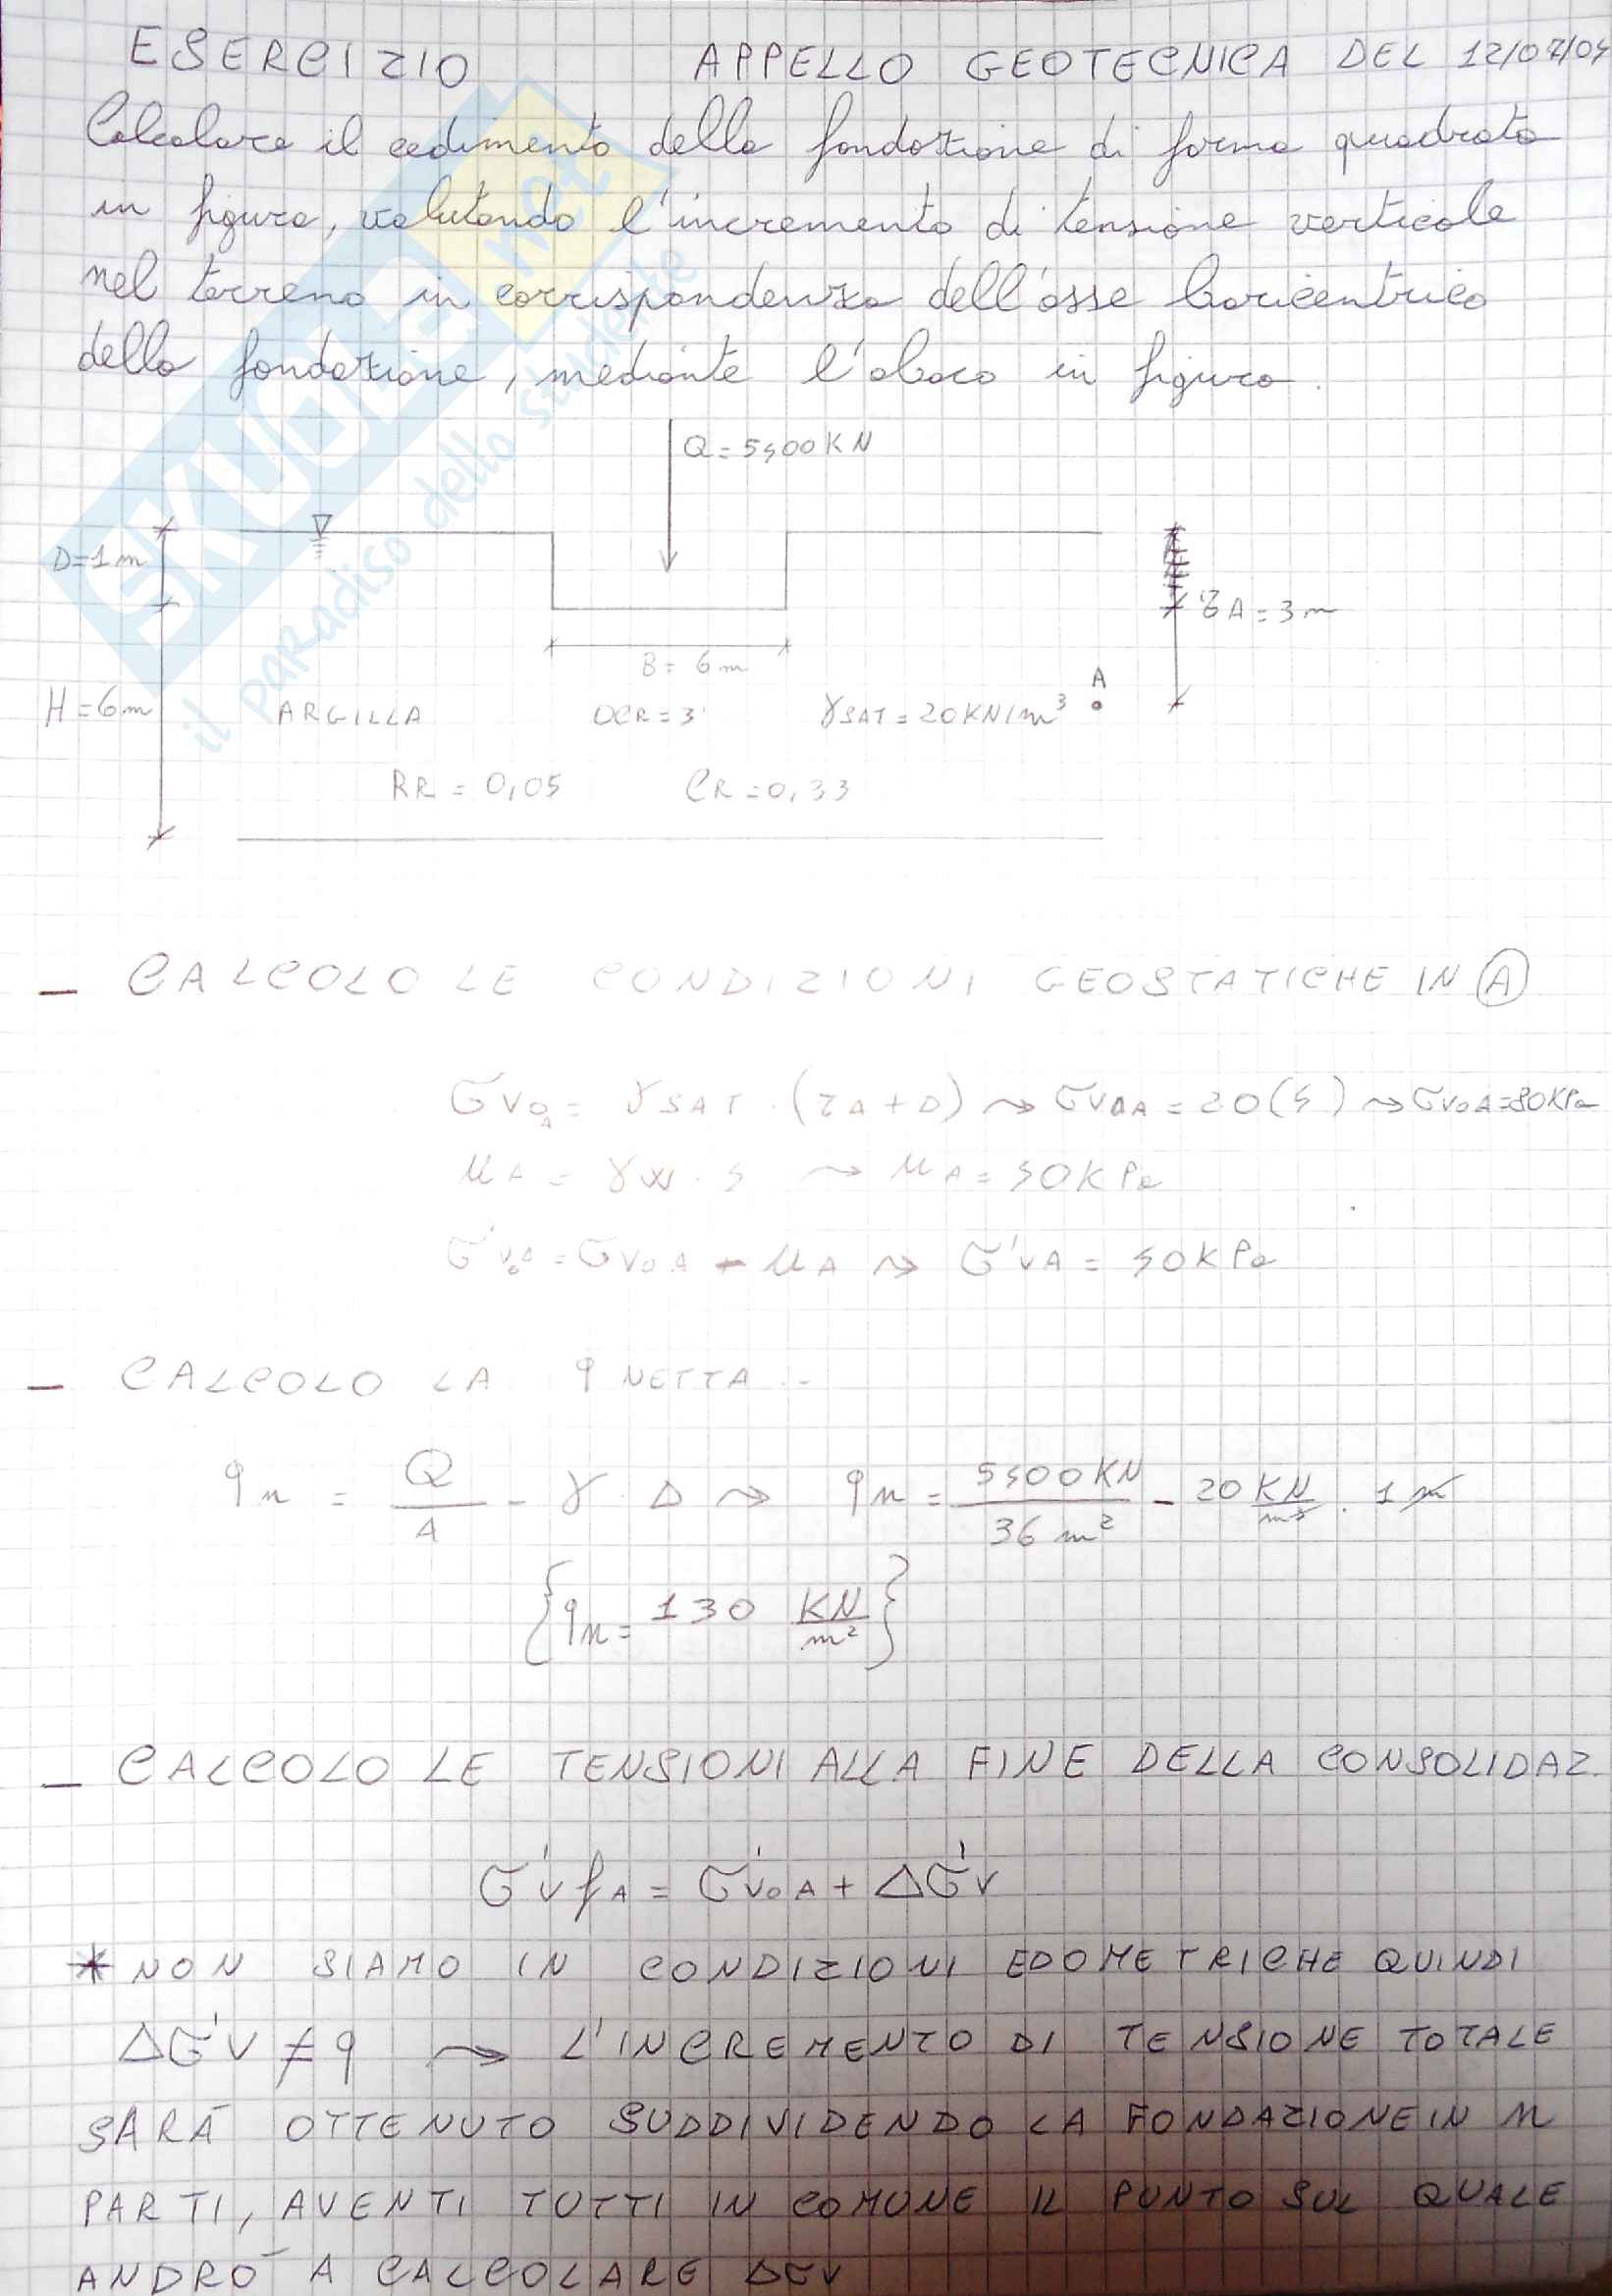 ESERCIZIO APPELLO GEOTECNICA DEL 12/07/04
Calcolare il cedimento della fondazione di forma quadrata
in figura, valutando l'incremento di tensione verticale
nel terreno in corrispondenza dell'asse baricentrico
della fondazione, mediante l'abaco in figura.
Q = 5400 KN
D=1m
ZA = 3m
B = 6m
A
H = 6m ARGILLA OCR = 3 γSAT = 20 KN/m³
RR = 0,05 CR = 0,33
- CALCOLO LE CONDIZIONI GEOSTATICHE IN A
σv0A = γSAT · (zA + D) ⇝ σv0A = 20(4) ⇝ σv0A = 80 KPa
uA = γw · 4 ⇝ uA = 40 KPa
σ'v0A = σv0A - uA ⇝ σ'vA = 40 KPa
- CALCOLO LA q NETTA ..
qn = Q/A - γ · D ⇝ qn = 5400 KN/36 m² - 20 KN/m³ · 1 m
{qn = 130 KN/m²}
- CALCOLO LE TENSIONI ALLA FINE DELLA CONSOLIDAZ.
σ'vfA = σ'v0A + Δσ'v
* NON SIAMO IN CONDIZIONI EDOMETRICHE QUINDI
Δσ'v ≠ q ⇝ L'INCREMENTO DI TENSIONE TOTALE
SARÀ OTTENUTO SUDDIVIDENDO LA FONDAZIONE IN n
PARTI, AVENTI TUTTI IN COMUNE IL PUNTO SUL QUALE
ANDRÒ A CALCOLARE Δσv
SKUOLA.net
il paradiso dello studente